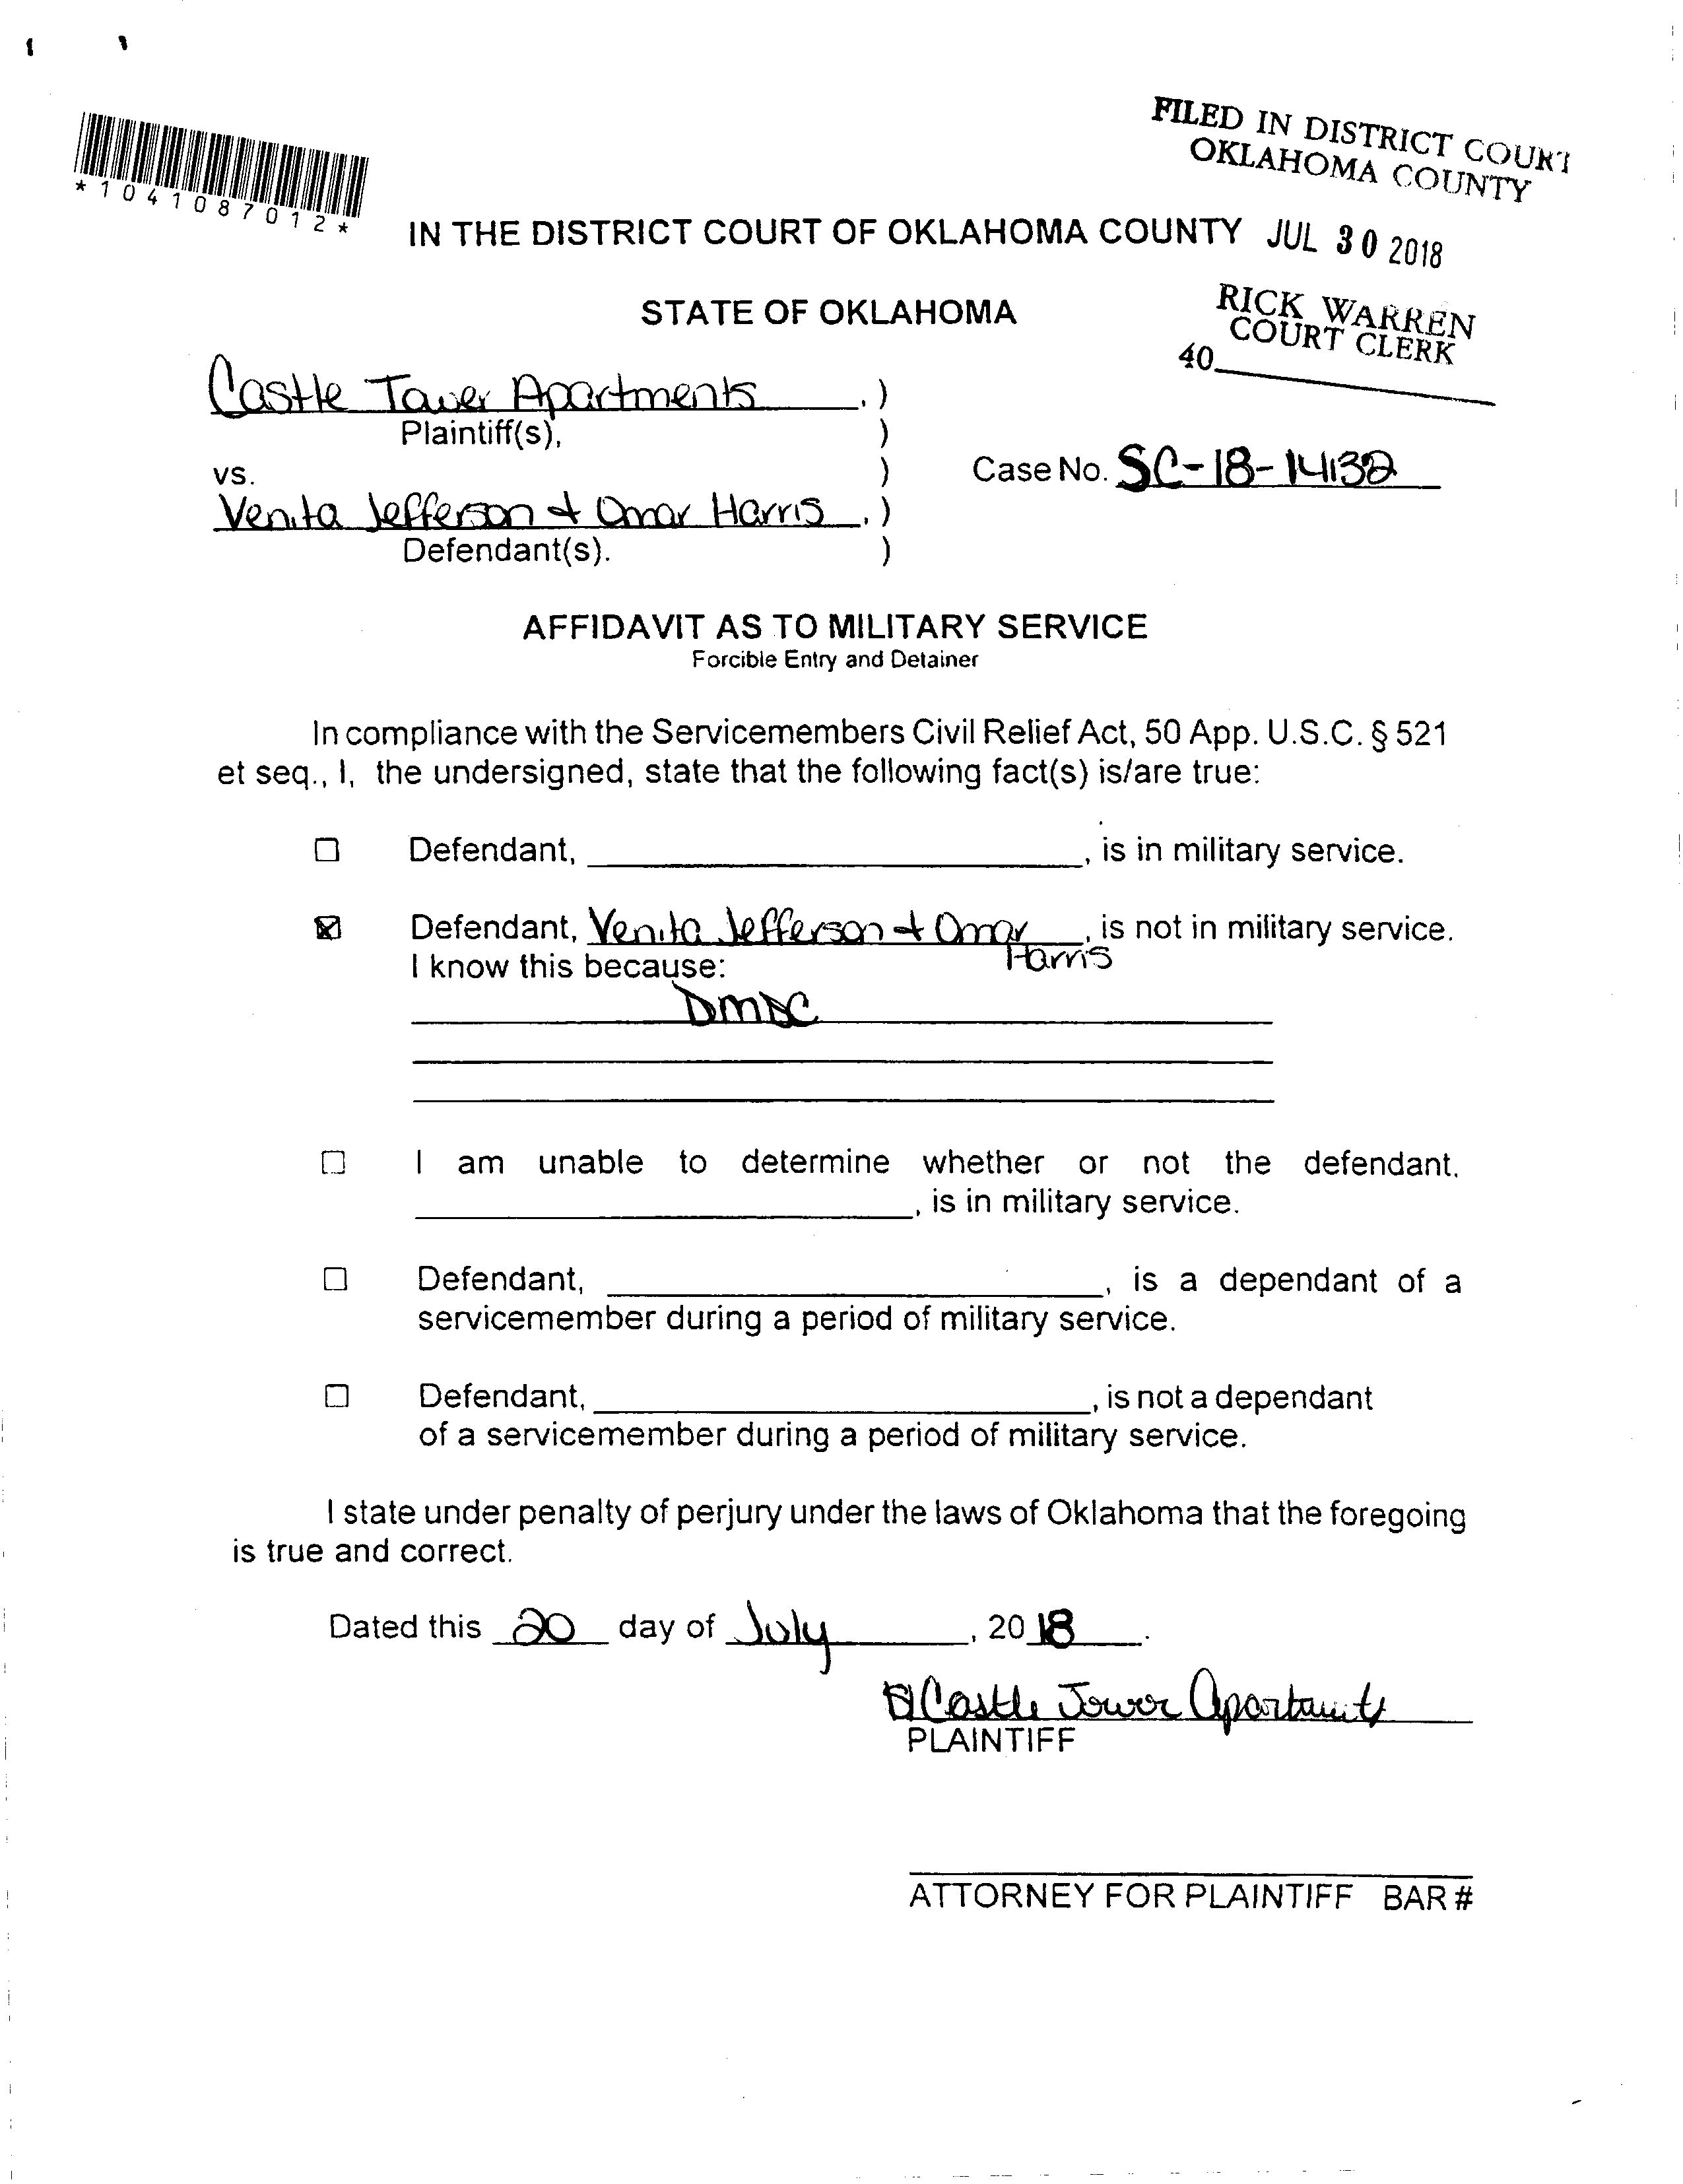 FILED IN DISTRICT COURT
OKLAHOMA COUNTY
*1041087012*
IN THE DISTRICT COURT OF OKLAHOMA COUNTY JUL 30 2018
STATE OF OKLAHOMA
RICK WARREN
COURT CLERK
40
Castle Tower Apartments, )
Plaintiff(s), )
vs. ) Case No. SC-18-14132
Venita Jefferson + Omar Harris, )
Defendant(s). )
AFFIDAVIT AS TO MILITARY SERVICE
Forcible Entry and Detainer
In compliance with the Servicemembers Civil Relief Act, 50 App. U.S.C. § 521
et seq., I, the undersigned, state that the following fact(s) is/are true:
☐ Defendant, ____, is in military service.
☒ Defendant, Venita Jefferson + Omar Harris, is not in military service.
I know this because:
DMDC
☐ I am unable to determine whether or not the defendant,
____, is in military service.
☐ Defendant, ____, is a dependant of a
servicemember during a period of military service.
☐ Defendant, ____, is not a dependant
of a servicemember during a period of military service.
I state under penalty of perjury under the laws of Oklahoma that the foregoing
is true and correct.
Dated this 20 day of July, 2018.
Castle Tower Apartments
PLAINTIFF
ATTORNEY FOR PLAINTIFF BAR #